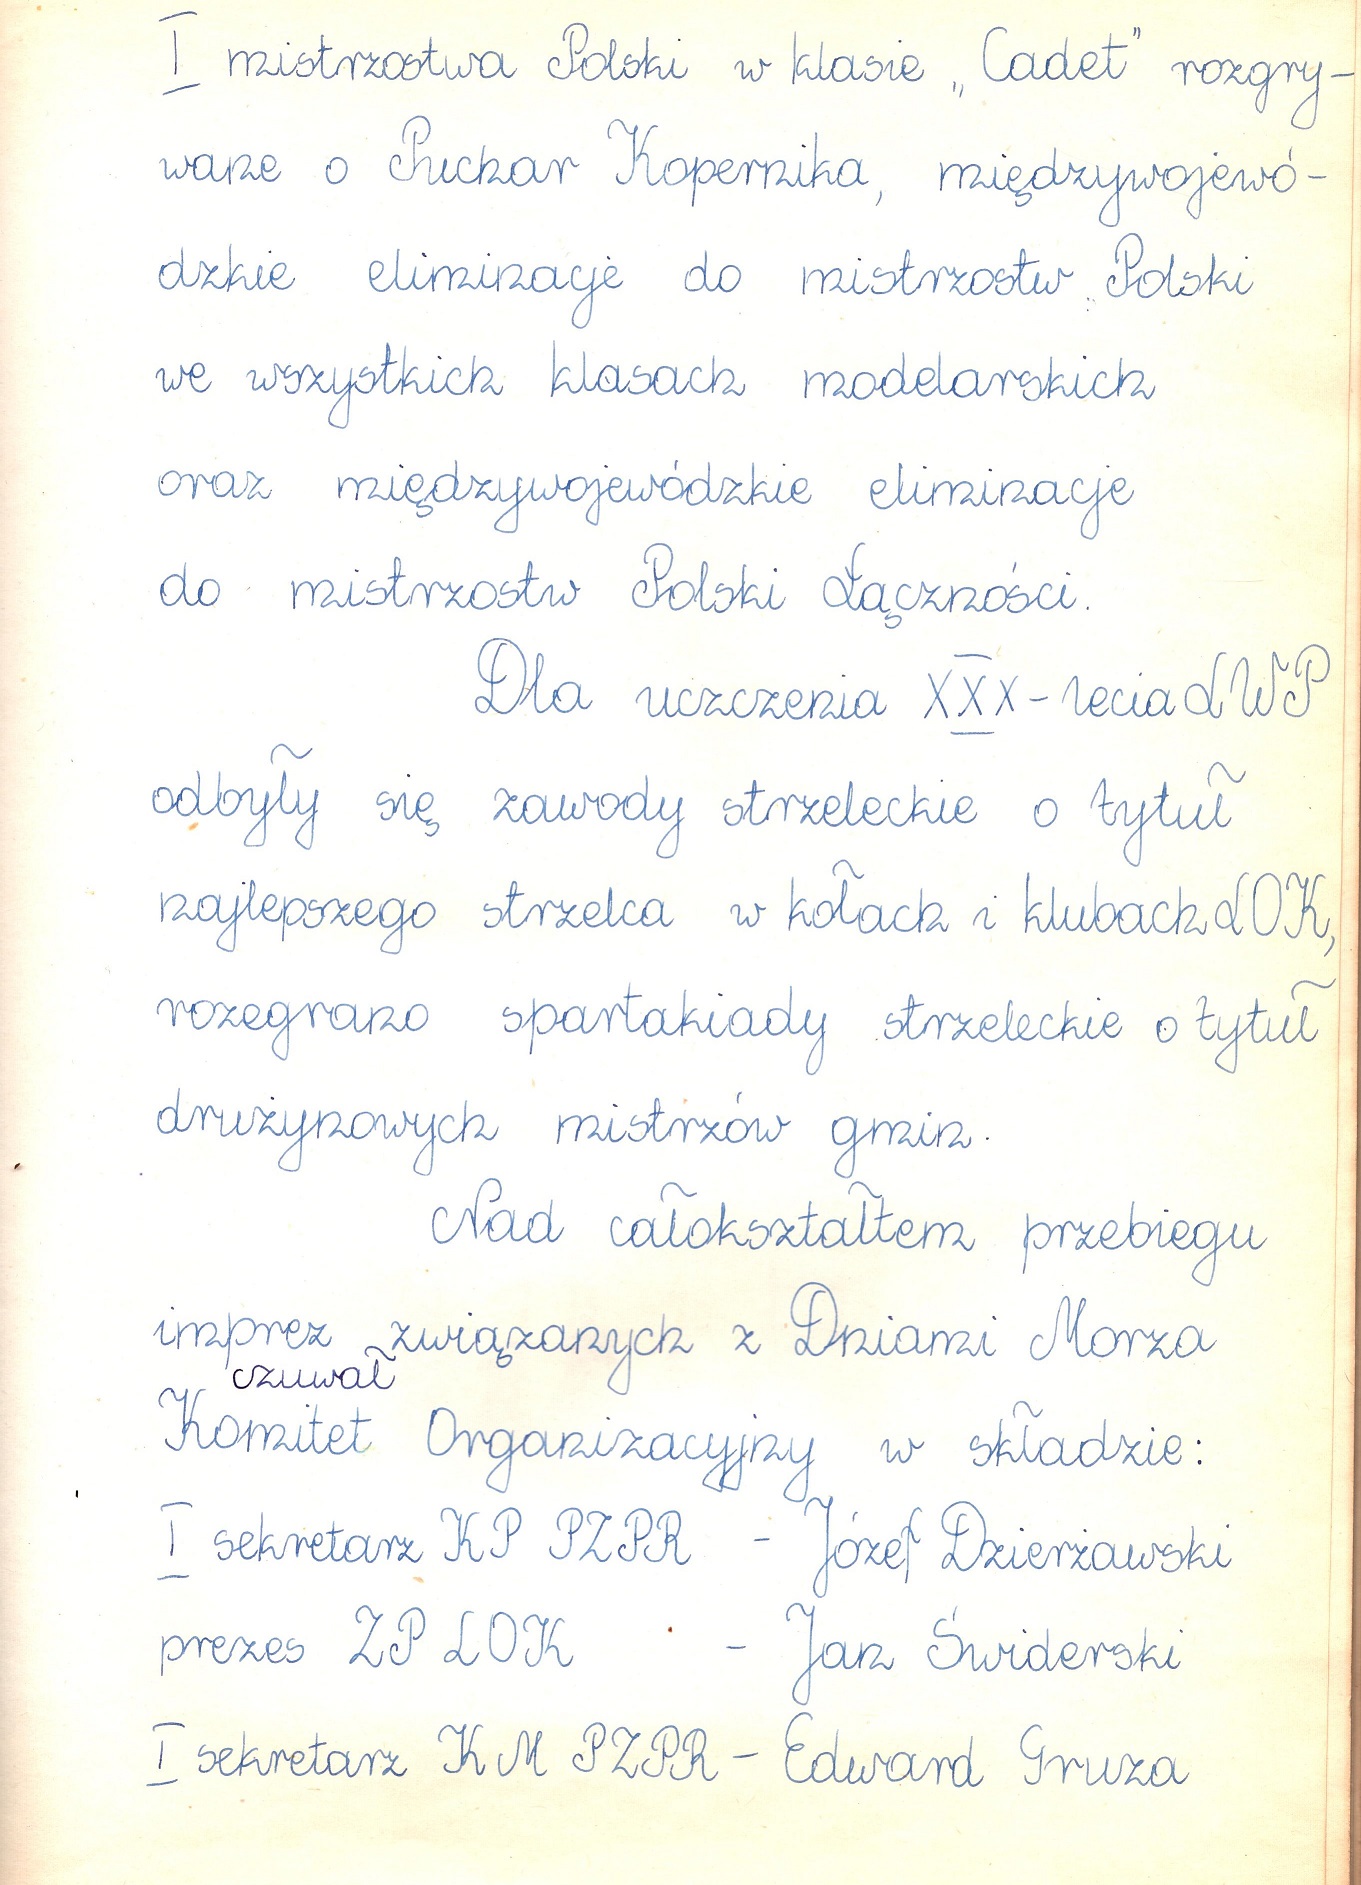 I mistrzostwa Polski w klasie „Cadet" rozgry-
wane o Puchar Kopernika, międzywojewó-
dzkie eliminacje do mistrzostw Polski
we wszystkich klasach modelarskich
oraz międzywojewódzkie eliminacje
do mistrzostw Polski Łączności.
Dla uczczenia XXX-lecia LWP
odbyły się zawody strzeleckie o tytuł
najlepszego strzelca w kołach i klubach LOK,
rozegrano spartakiady strzeleckie o tytuł
drużynowych mistrzów gmin.
Nad całokształtem przebiegu
imprez związanych z Dniami Morza
czuwał
Komitet Organizacyjny w składzie:
I sekretarz KP PZPR - Józef Dzierżawski
prezes ZP LOK - Jan Świderski
I sekretarz KM PZPR - Edward Gruza